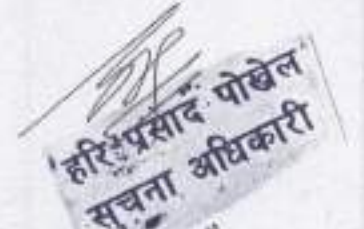 हरि प्रसाद पोखेल
सूचना अधिकारी